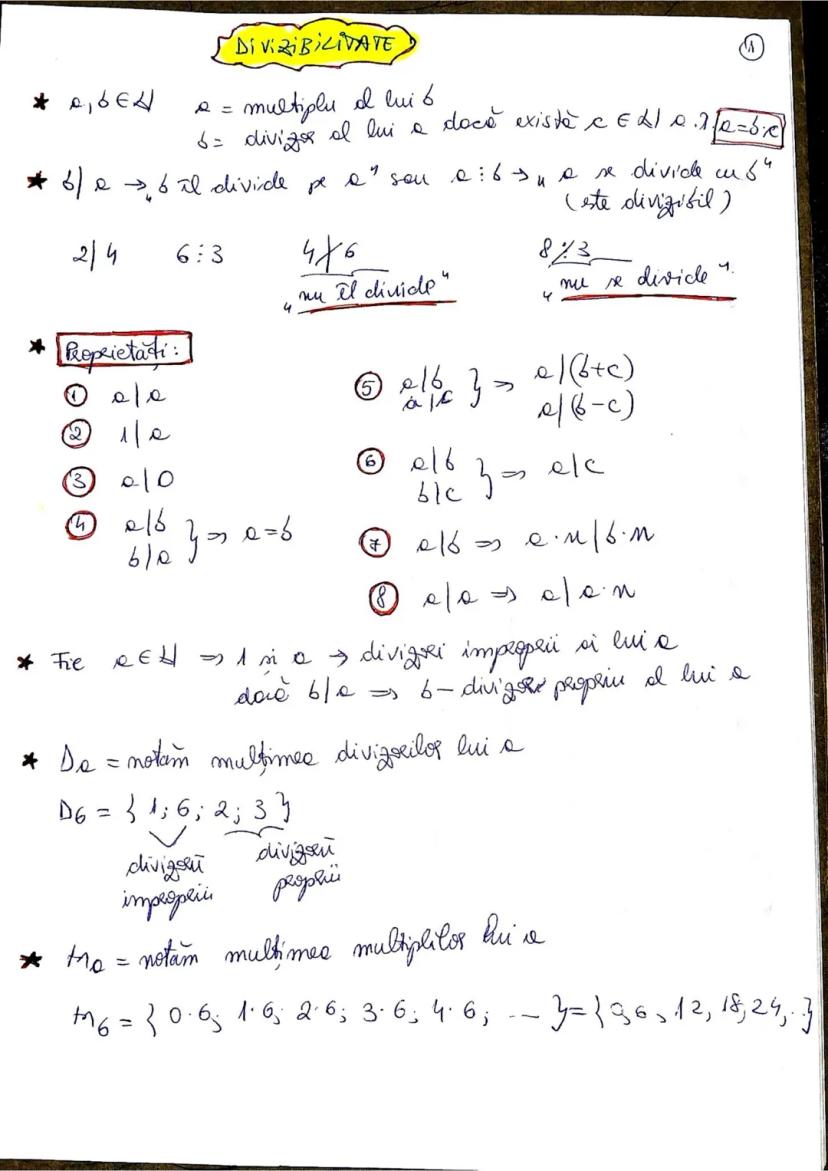 DIVIZIBILITATE
1
* a, b ∈ ℕ a = multiplu al lui b
b = divizor al lui a dacă există c ∈ ℕ a.î. a=b·c
* b|a → „b îl divide pe a" sau a⋮b → „a se divide cu b"
(este divizibil)
2|4 6⋮3 4∤6 8⋮̸3
„nu îl divide" „nu se divide".
* Proprietăți:
① a|a
② 1|a
③ a|0
④ a|b
b|a } ⇒ a=b
⑤ a|b
a|c } ⇒ a|(b+c)
a|(b-c)
⑥ a|b
b|c } ⇒ a|c
⑦ a|b ⇒ a·n|b·n
⑧ a|a ⇒ a|a·n
* Fie a ∈ ℕ ⇒ 1 și a → divizori improprii ai lui a
dacă b|a ⇒ b - divizor propriu al lui a
* Da = notăm mulțimea divizorilor lui a
D6 = { 1; 6; 2; 3 }
divizori divizori
improprii proprii
* Ma = notăm mulțimea multiplilor lui a
M6 = { 0·6; 1·6; 2·6; 3·6; 4·6; ... } = { 0, 6, 12, 18, 24, .. }